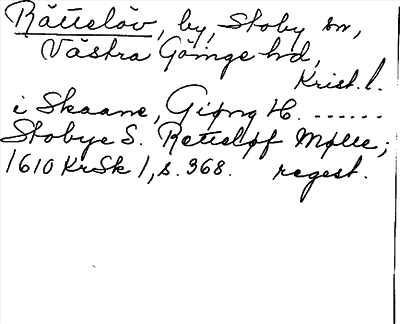 Rättelöv, by, Stoby sn,
Västra Göinge hd,
Krist. l.
i Skaane, Giøng H. ......
Stobye S. Retteløf Mølle;
1610 KrSk 1, s. 368. regest.